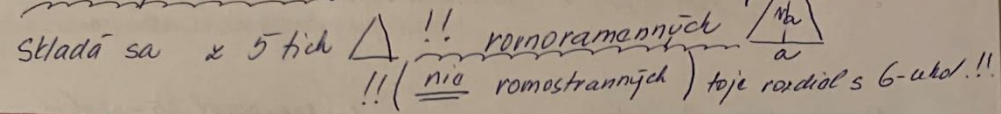 Skladá sa z 5tich !! rovnoramenných va a
!! (nie rovnostranných) toje rozdiel s 6-uhol.!!